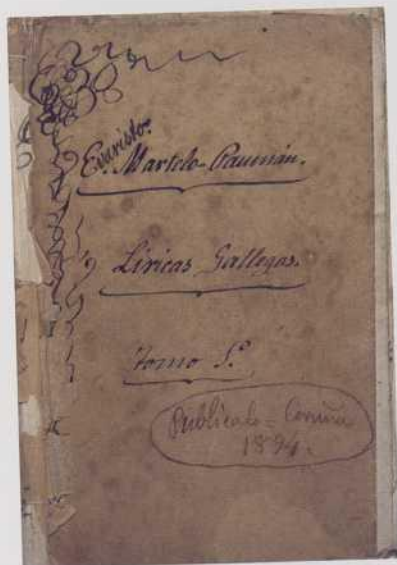 Evaristo.
E. Martelo-Paumán.
Líricas Gallegas.
Tomo 1.º
Publicado = Coruña
1894.